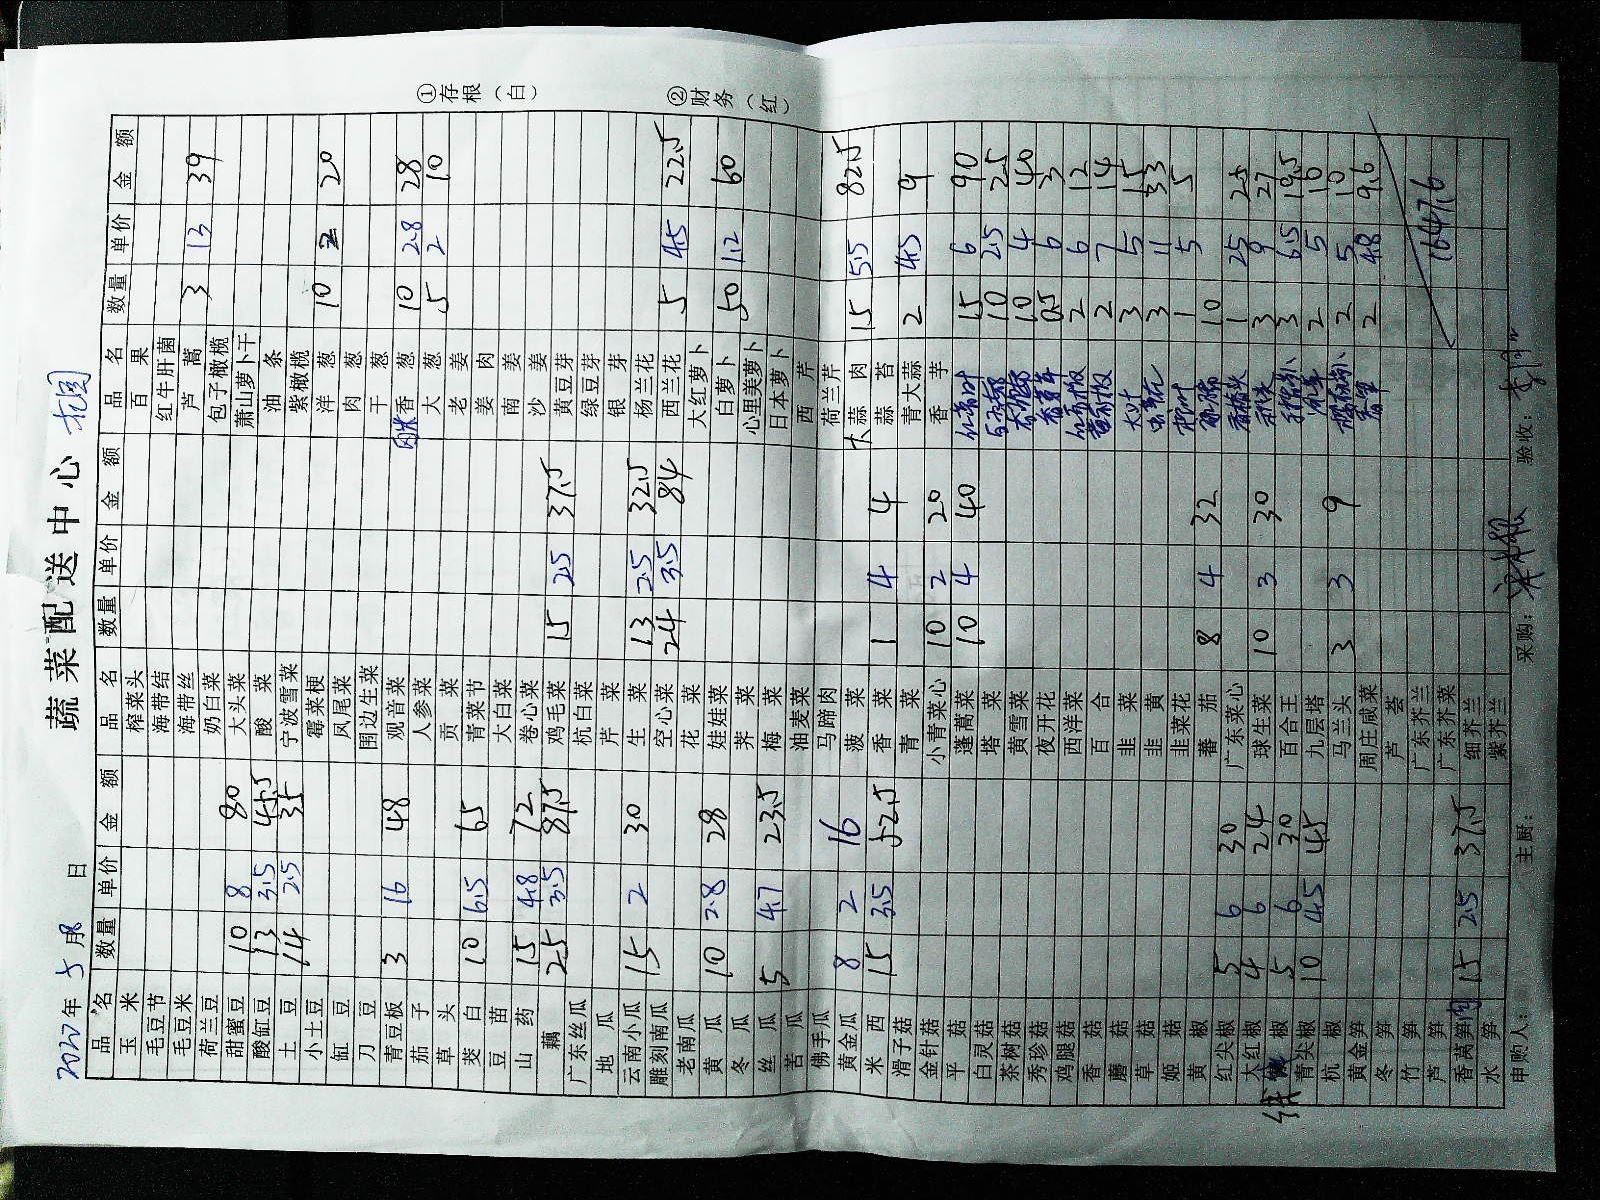 蔬菜配送中心 花园
2022年5月8日
①存根（白）
②财务（红）
品名 数量 单价 金额 品名 数量 单价 金额 品名 数量 单价 金额
玉米 榨菜头 百果
毛豆节 海带结 红牛肝菌
毛豆米 海带丝 芦蒿 3 13 39
荷兰豆 奶白菜 包子橄榄
甜蜜豆 10 8 80 大头菜 萧山萝卜干
酸缸豆 13 3.5 45.5 酸菜 油条
土豆 14 2.5 35 宁波雪菜 紫橄榄
小土豆 霉菜梗 洋葱 10 2 20
缸豆 凤尾菜 肉葱
刀豆 围边生菜 干葱
青豆板 3 16 48 观音菜 香葱 10 2.8 28
茄子 人参菜 大葱 5 2 10
草头 贡菜 老姜
茭白 10 6.5 65 青菜节 姜肉
豆苗 大白菜 南姜
山药 15 4.8 72 卷心菜 沙姜
藕 25 3.5 87.5 鸡毛菜 15 2.5 37.5 黄豆芽
广东丝瓜 杭白菜 绿豆芽
地瓜 芹菜 银芽
云南小瓜 15 2 30 生菜 13 2.5 32.5 杨兰花
雕刻南瓜 空心菜 24 3.5 84 西兰花 5 4.5 22.5
老南瓜 花菜 大红萝卜
黄瓜 10 2.8 28 娃娃菜 白萝卜 50 1.2 60
冬瓜 荠菜 心里美萝卜
丝瓜 5 4.7 23.5 梅菜 日本萝卜
苦瓜 油麦菜 西芹
佛手瓜 马蹄肉 荷兰芹
黄金瓜 8 2 16 菠菜 大蒜肉 15 5.5 82.5
米西 15 3.5 52.5 香菜 1 4 4 蒜苔
滑子菇 青菜 青大蒜 2 4.5 9
金针菇 小青菜心 10 2 20 香芋
平菇 蓬蒿菜 10 4 40 15 6 90
白灵菇 塔菜 10 2.5 25
茶树菇 黄雪菜 10 4 40
秀珍菇 夜开花 0.5 6 3
鸡腿菇 西洋菜 2 6 12
香菇 百合 2 7 14
蘑菇 韭菜 大叶 3 5 15
草菇 韭黄 3 11 33
姬菇 韭菜花 1 5 5
黄椒 蕃茄 8 4 32 10
红尖椒 5 6 30 广东菜心 1 25 25
大红椒 4 6 24 球生菜 10 3 30 3 9 27
椒 5 6 30 百合王 3 6.5 19.5
青尖椒 10 4.5 45 九层塔 2 5 10
杭椒 马兰头 3 3 9 2 5 10
黄金笋 周庄咸菜 2 4.8 9.6
冬笋 芦荟
竹笋 广东芥兰
芦笋 广东芥菜 1647.6
香莴笋 15 2.5 37.5 细芥兰
水笋 紫芥兰
申购人： 主厨： 采购： 验收：